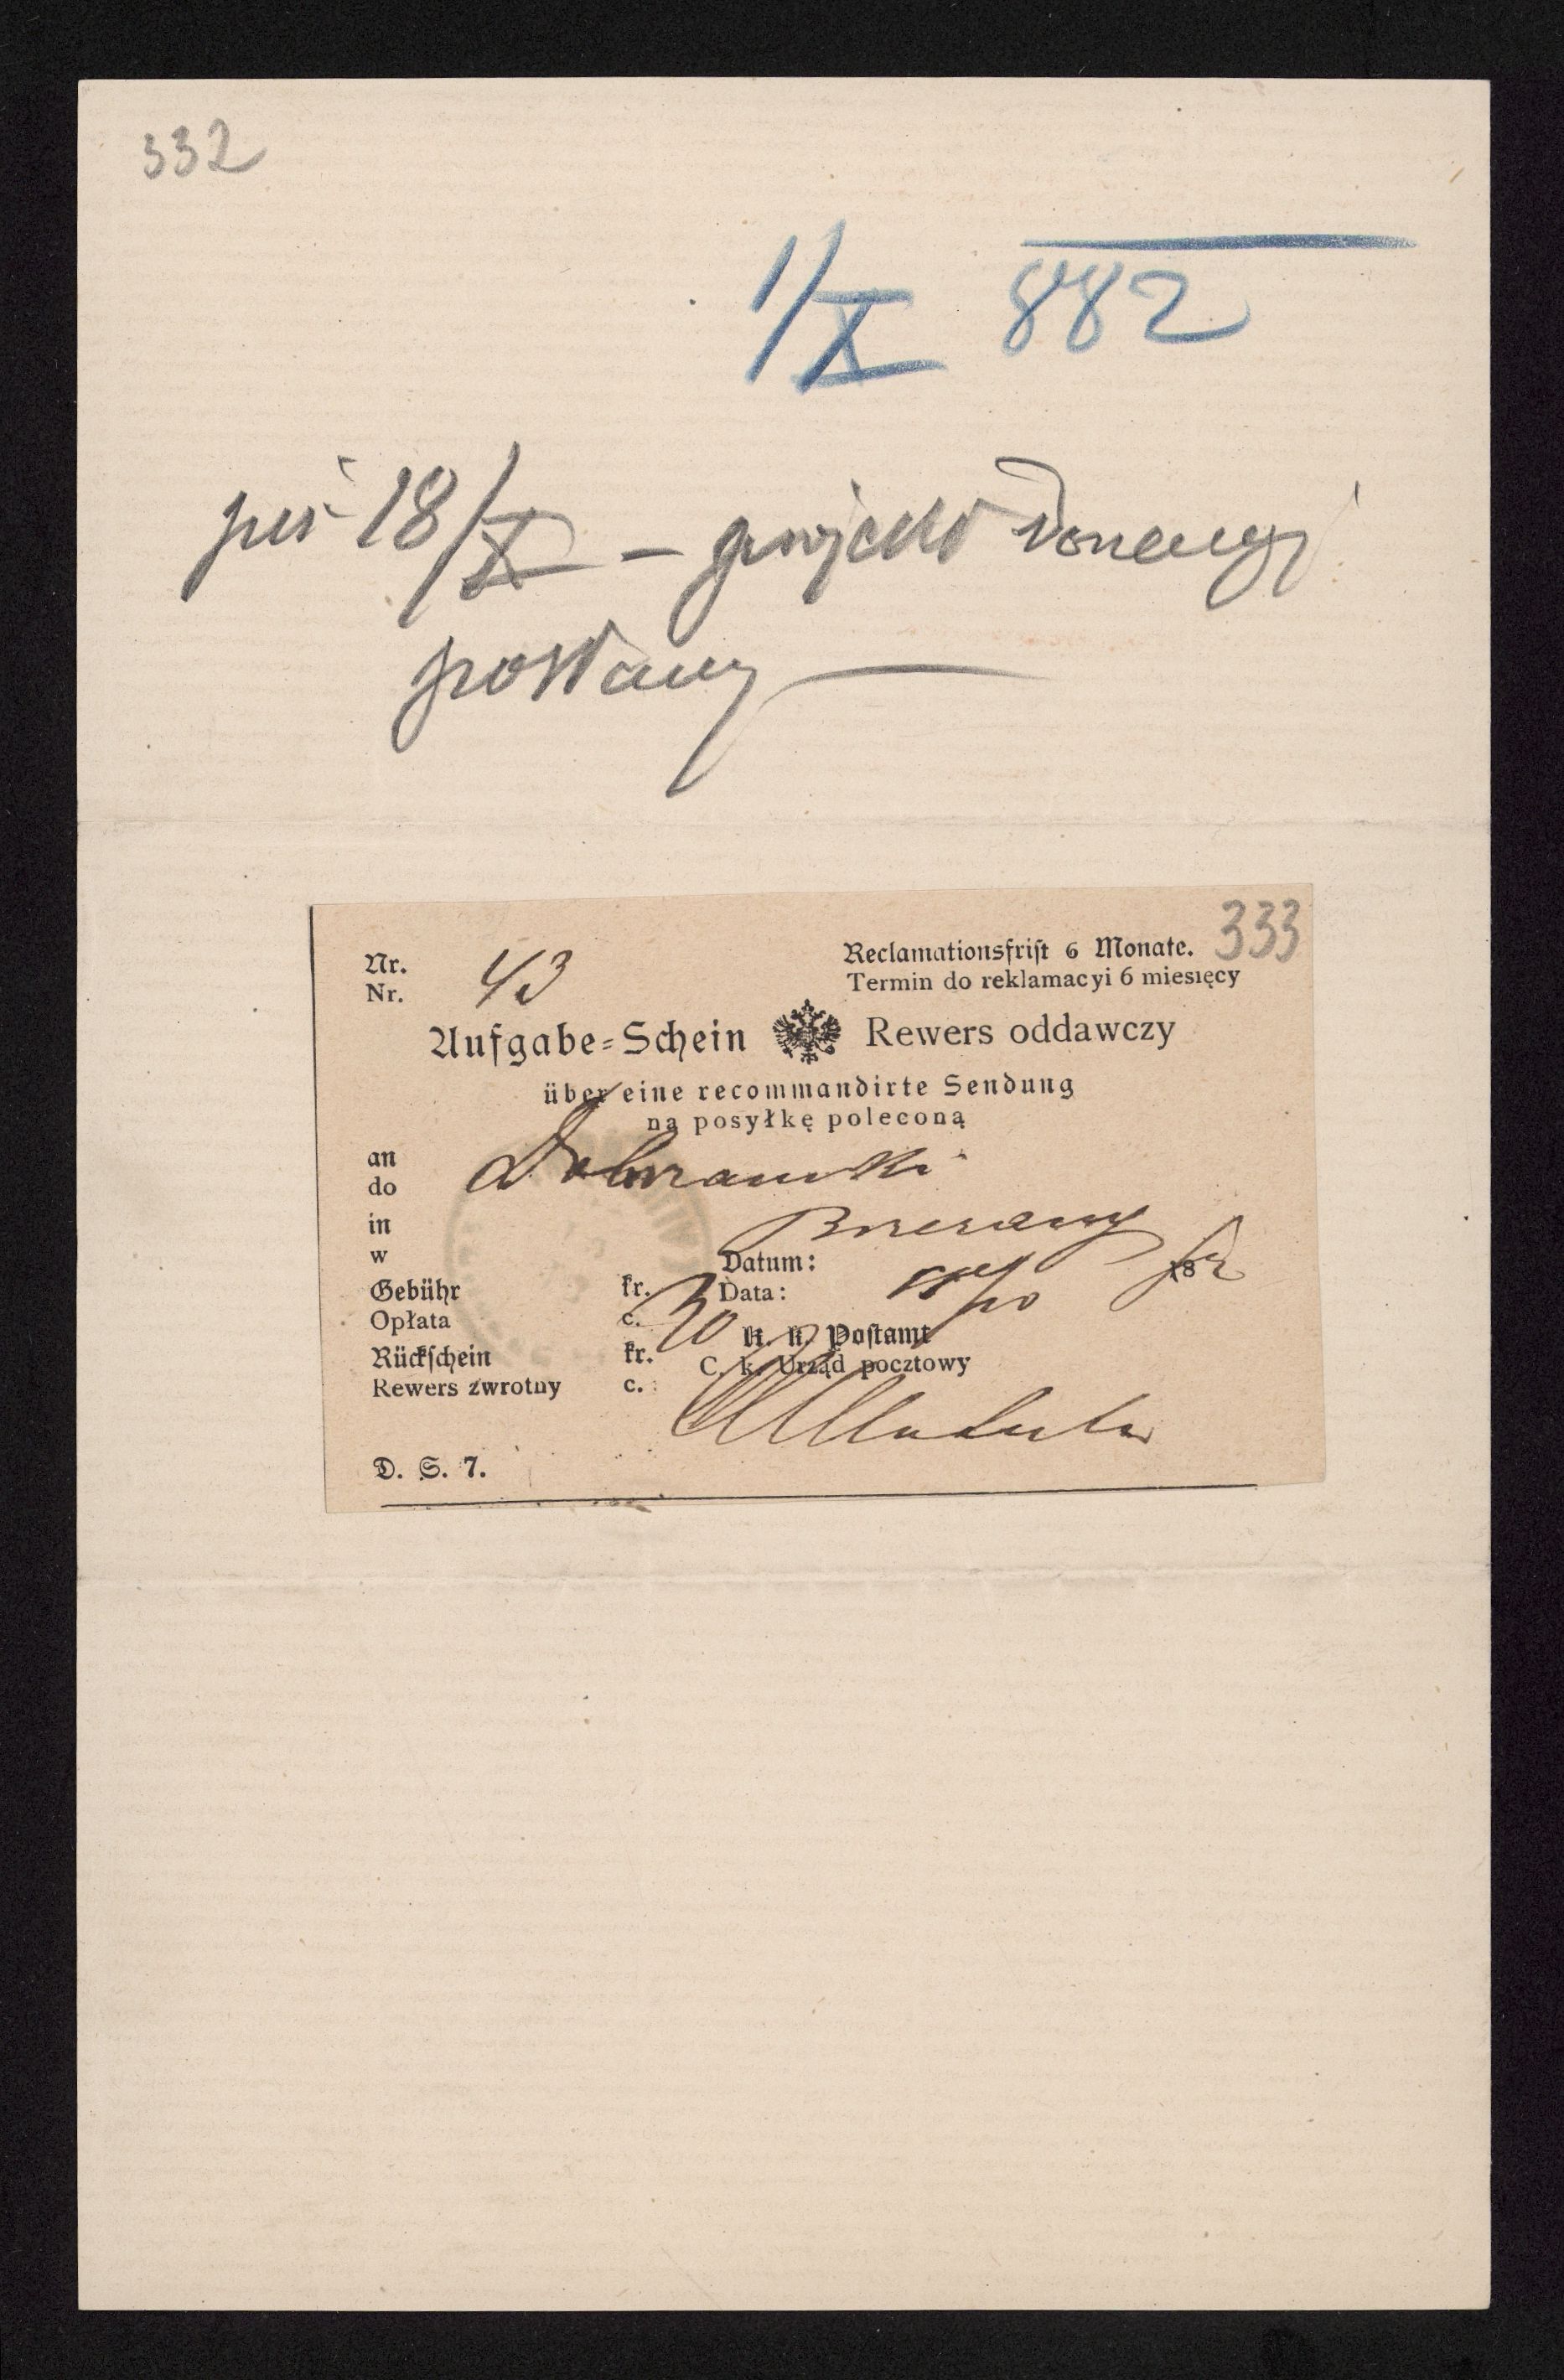 332
1/X 882
pis 18/X – projekt donacyi
posłany
333
Nr. Reclamationsfrist 6 Monate.
Nr. 43 Termin do reklamacyi 6 miesięcy
Aufgabe=Schein Rewers oddawczy
über eine recommandirte Sendung
na posyłkę poleconą
an
do Dobrzański
in Brzezany
w
Datum:
Gebühr kr. Data: 18/10 882
Opłata c. 30
K. k. Postamt
Rückschein kr. C. k. Urząd pocztowy
Rewers zwrotny c.
D. S. 7.